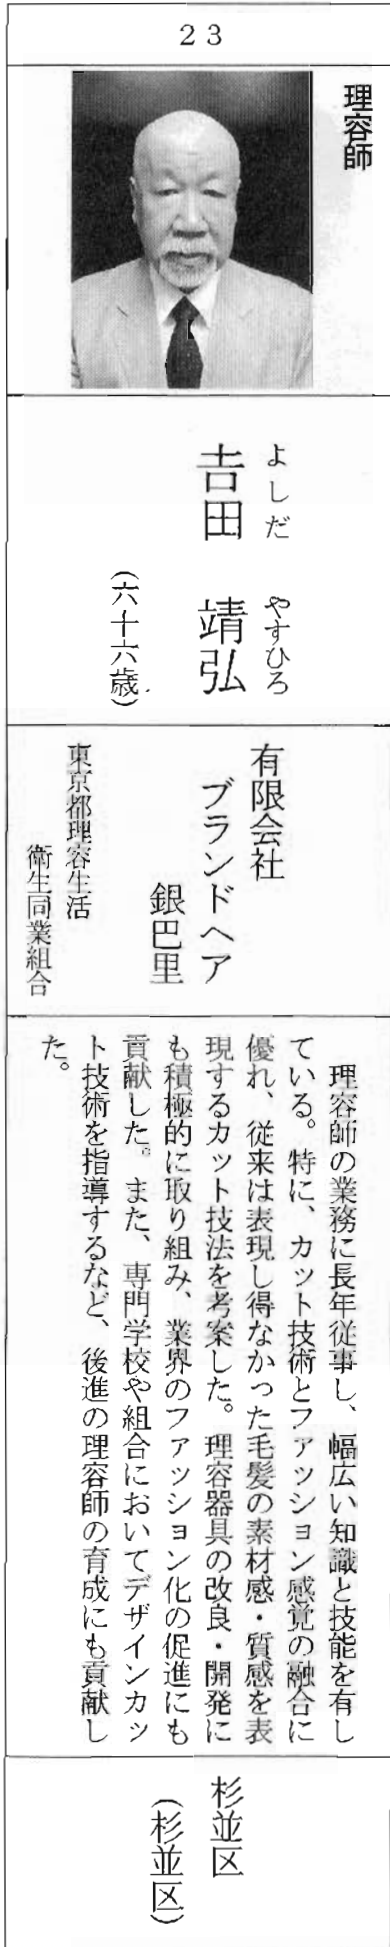 ２３
理容師
よしだ　やすひろ
吉田　靖弘
（六十六歳）
有限会社
ブランドヘア
銀巴里
東京都理容生活
衛生同業組合
　理容師の業務に長年従事し、幅広い知識と技能を有し
ている。特に、カット技術とファッション感覚の融合に
優れ、従来は表現し得なかった毛髪の素材感・質感を表
現するカット技法を考案した。理容器具の改良・開発に
も積極的に取り組み、業界のファッション化の促進にも
貢献した。また、専門学校や組合においてデザインカッ
ト技術を指導するなど、後進の理容師の育成にも貢献し
た。
杉並区
（杉並区）